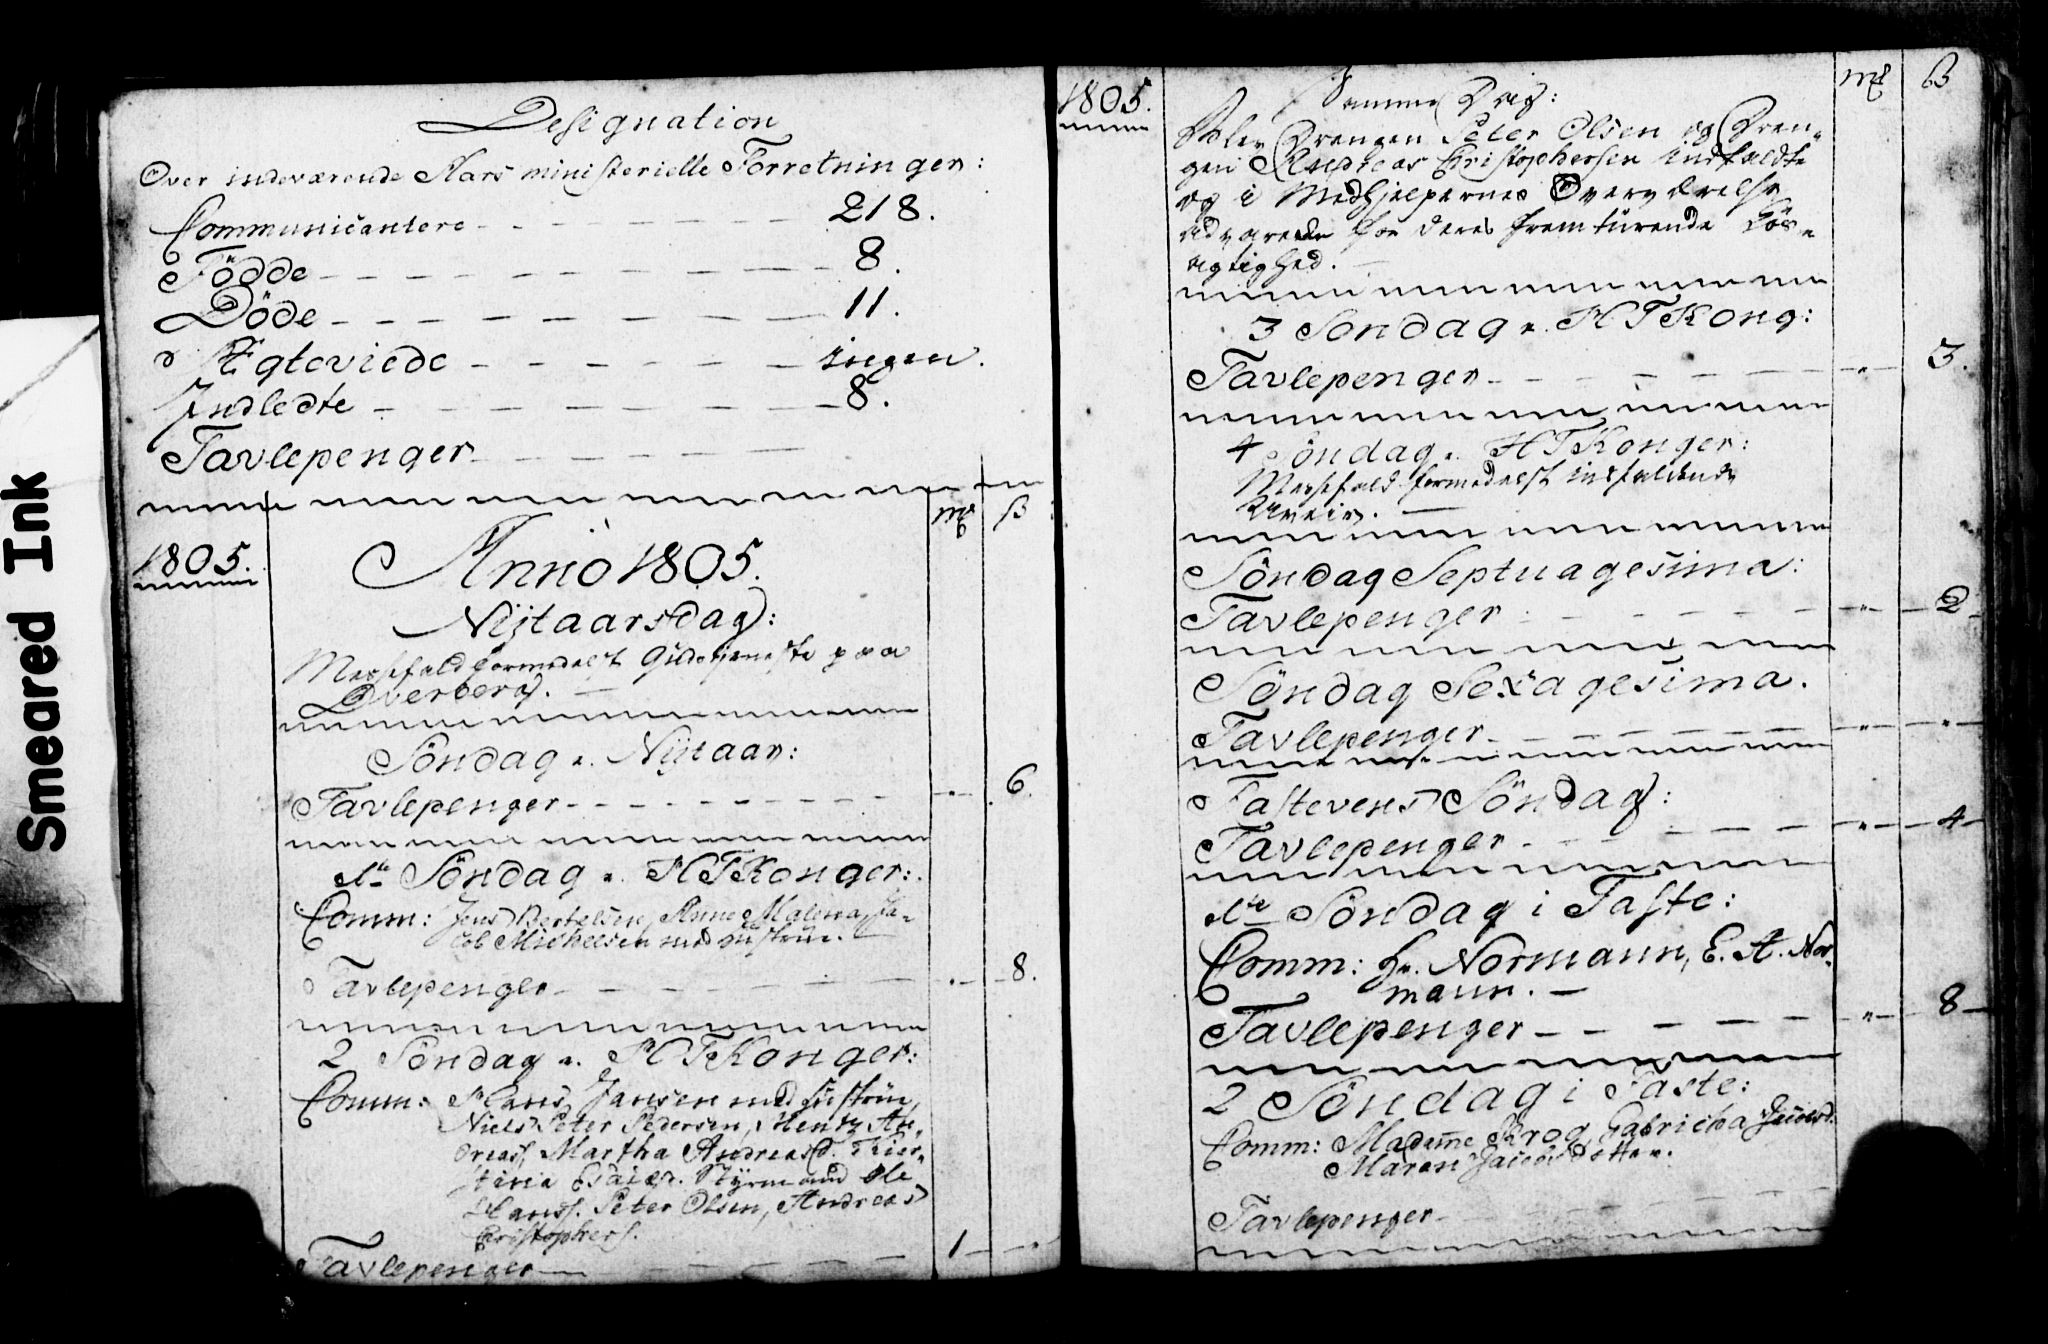 Smeared Ink
Designation
Over indeværende Aars ministerielle Forretninger:
Communicantere 218.
Födde 8.
Döde 11.
Ægteviede ingen.
Indledte 8.
Tavlepenger
mk ß
1805.
Anno 1805.
Nÿtaarsdag:
Messefald formedelst Gudstjeneste paa
Dverberg.
Söndag e. Nÿtaar:
Tavlepenger 6.
1te Söndag e. H T Konger:
Comm: Jens Bertelsen, Anne Malena, Ja-
cob Michelsen med Hustrue.
Tavlepenger 8.
2 Söndag e. H T Konger:
Comm: Hans Jansen med Hustrue,
Niels Peter Pedersen, Hen An-
dreas, Martha Andreasd. Kier-
stina Esaiæd. Stÿrmand Ole
Hanss. Peter Olsen, Andreas
Christophers.
Tavlepenger 1
1805.
mk ß
Samme Dag:
Blev Drengen Peter Olsen og Dren-
gen Andreas Christophersen indkaldte
og i Medhjelpernes Overværelse
advarede for deres fremturende Lös-
agtighed.
3 Söndag e. H T Kong:
Tavlepenger 3.
4 Söndag e. H T Konger:
Messefald formedelst indfaldende
Uveir.
Söndag Septuagesima:
Tavlepenger 2
Söndag Sexagesima.
Tavlepenger
Fastevens Söndag:
Tavlepenger 4
1te Söndag i Faste:
Comm: Hr. Normann, E. A. Nor-
mann.
Tavlepenger 8
2 Söndag i Faste:
Comm: Madame Krog, Fabricha Jacobsd.
Maren Jacobsdotter.
Tavlepenger